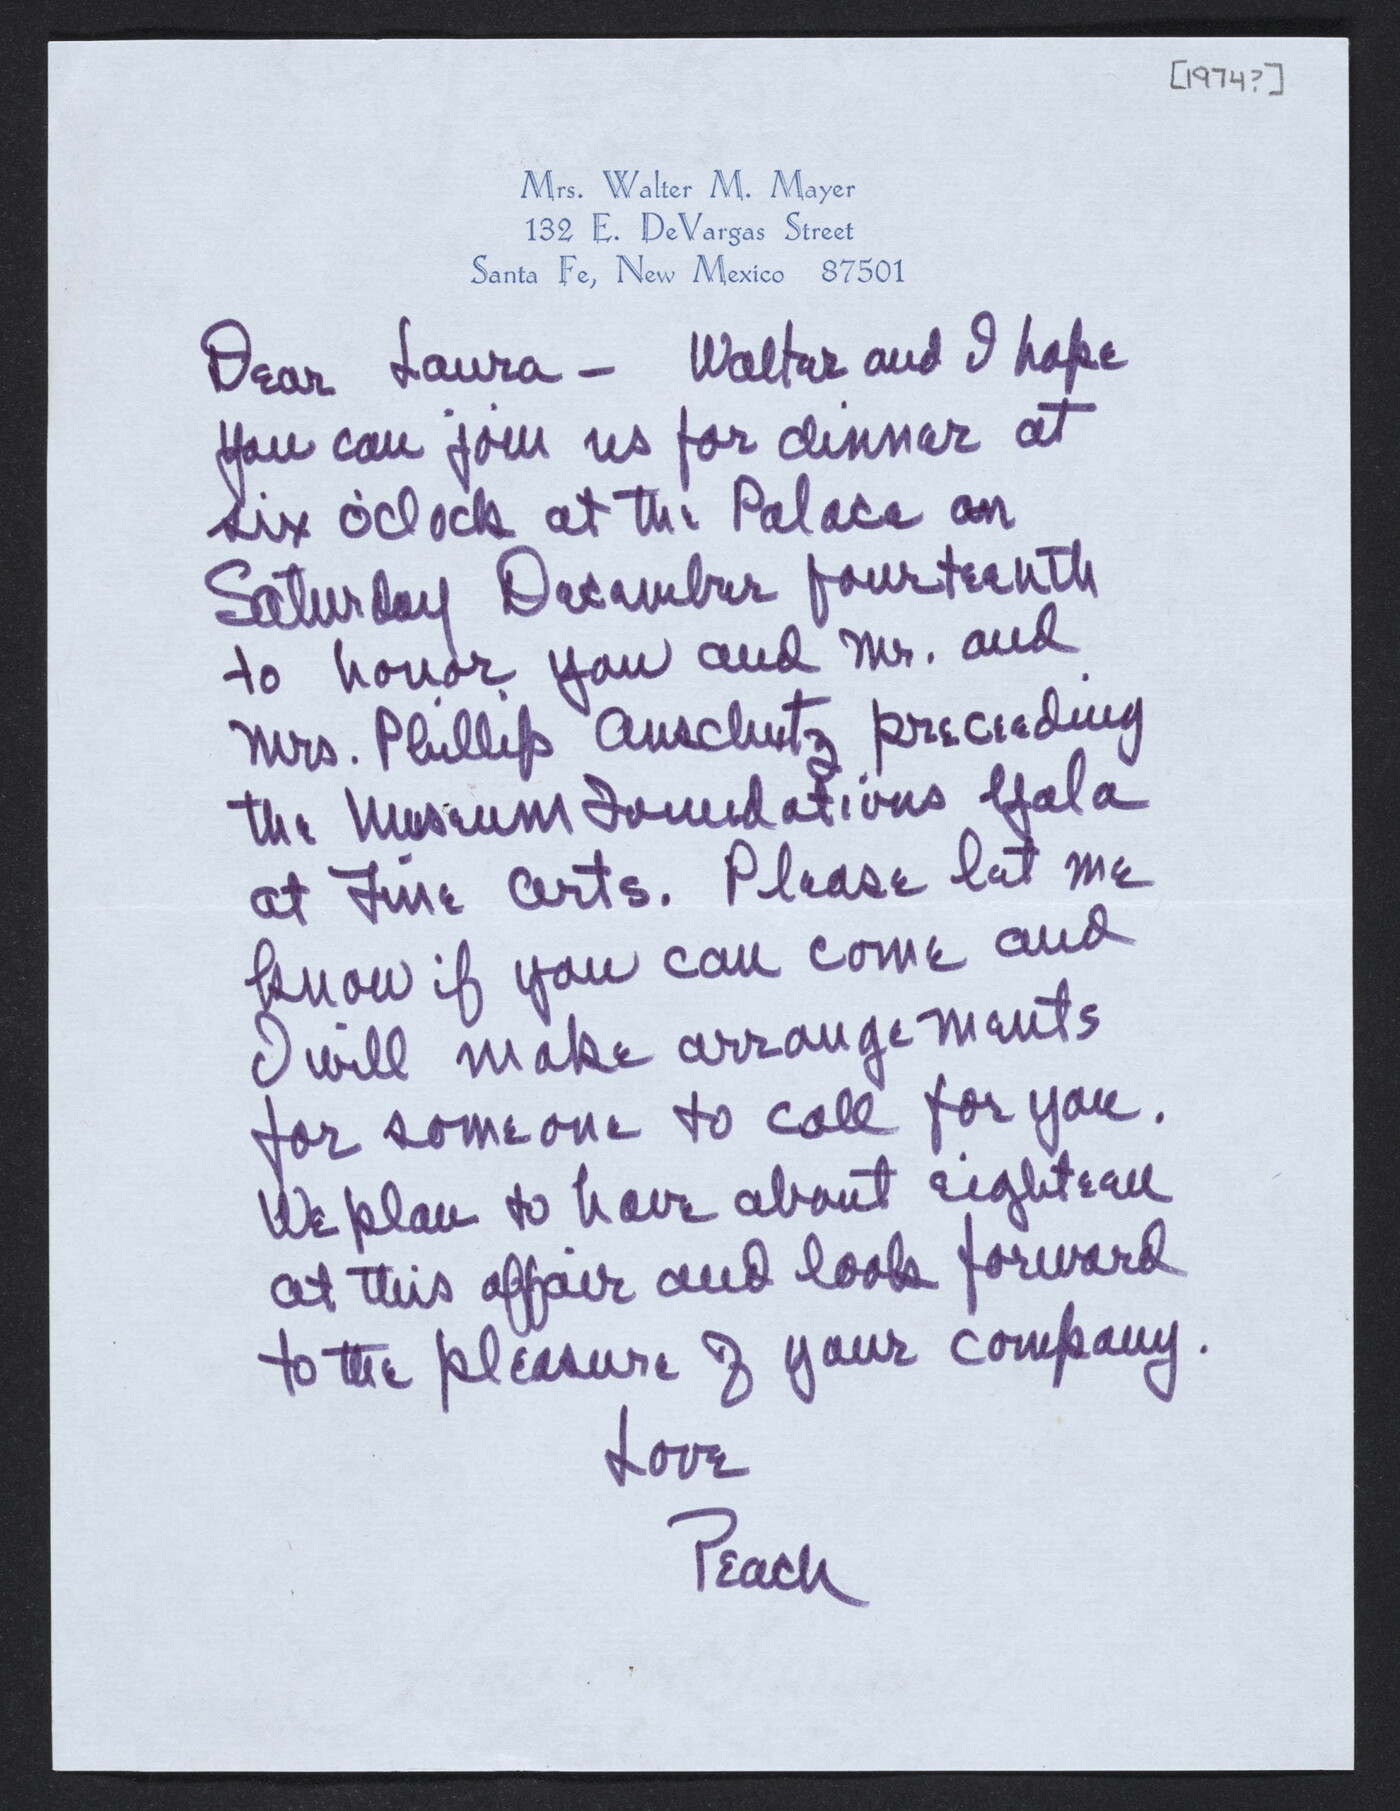 [1974?]
Mrs. Walter M. Mayer
132 E. DeVargas Street
Santa Fe, New Mexico 87501
Dear Laura — Walter and I hope
you can join us for dinner at
six o'clock at the Palace on
Saturday December fourteenth
to honor you and Mr. and
Mrs. Phillip Anschutz preceeding
the Museum Foundations Gala
at Fine Arts. Please let me
know if you can come and
I will make arrangements
for someone to call for you.
We plan to have about eighteen
at this affair and look forward
to the pleasure of your company.
Love
Peach